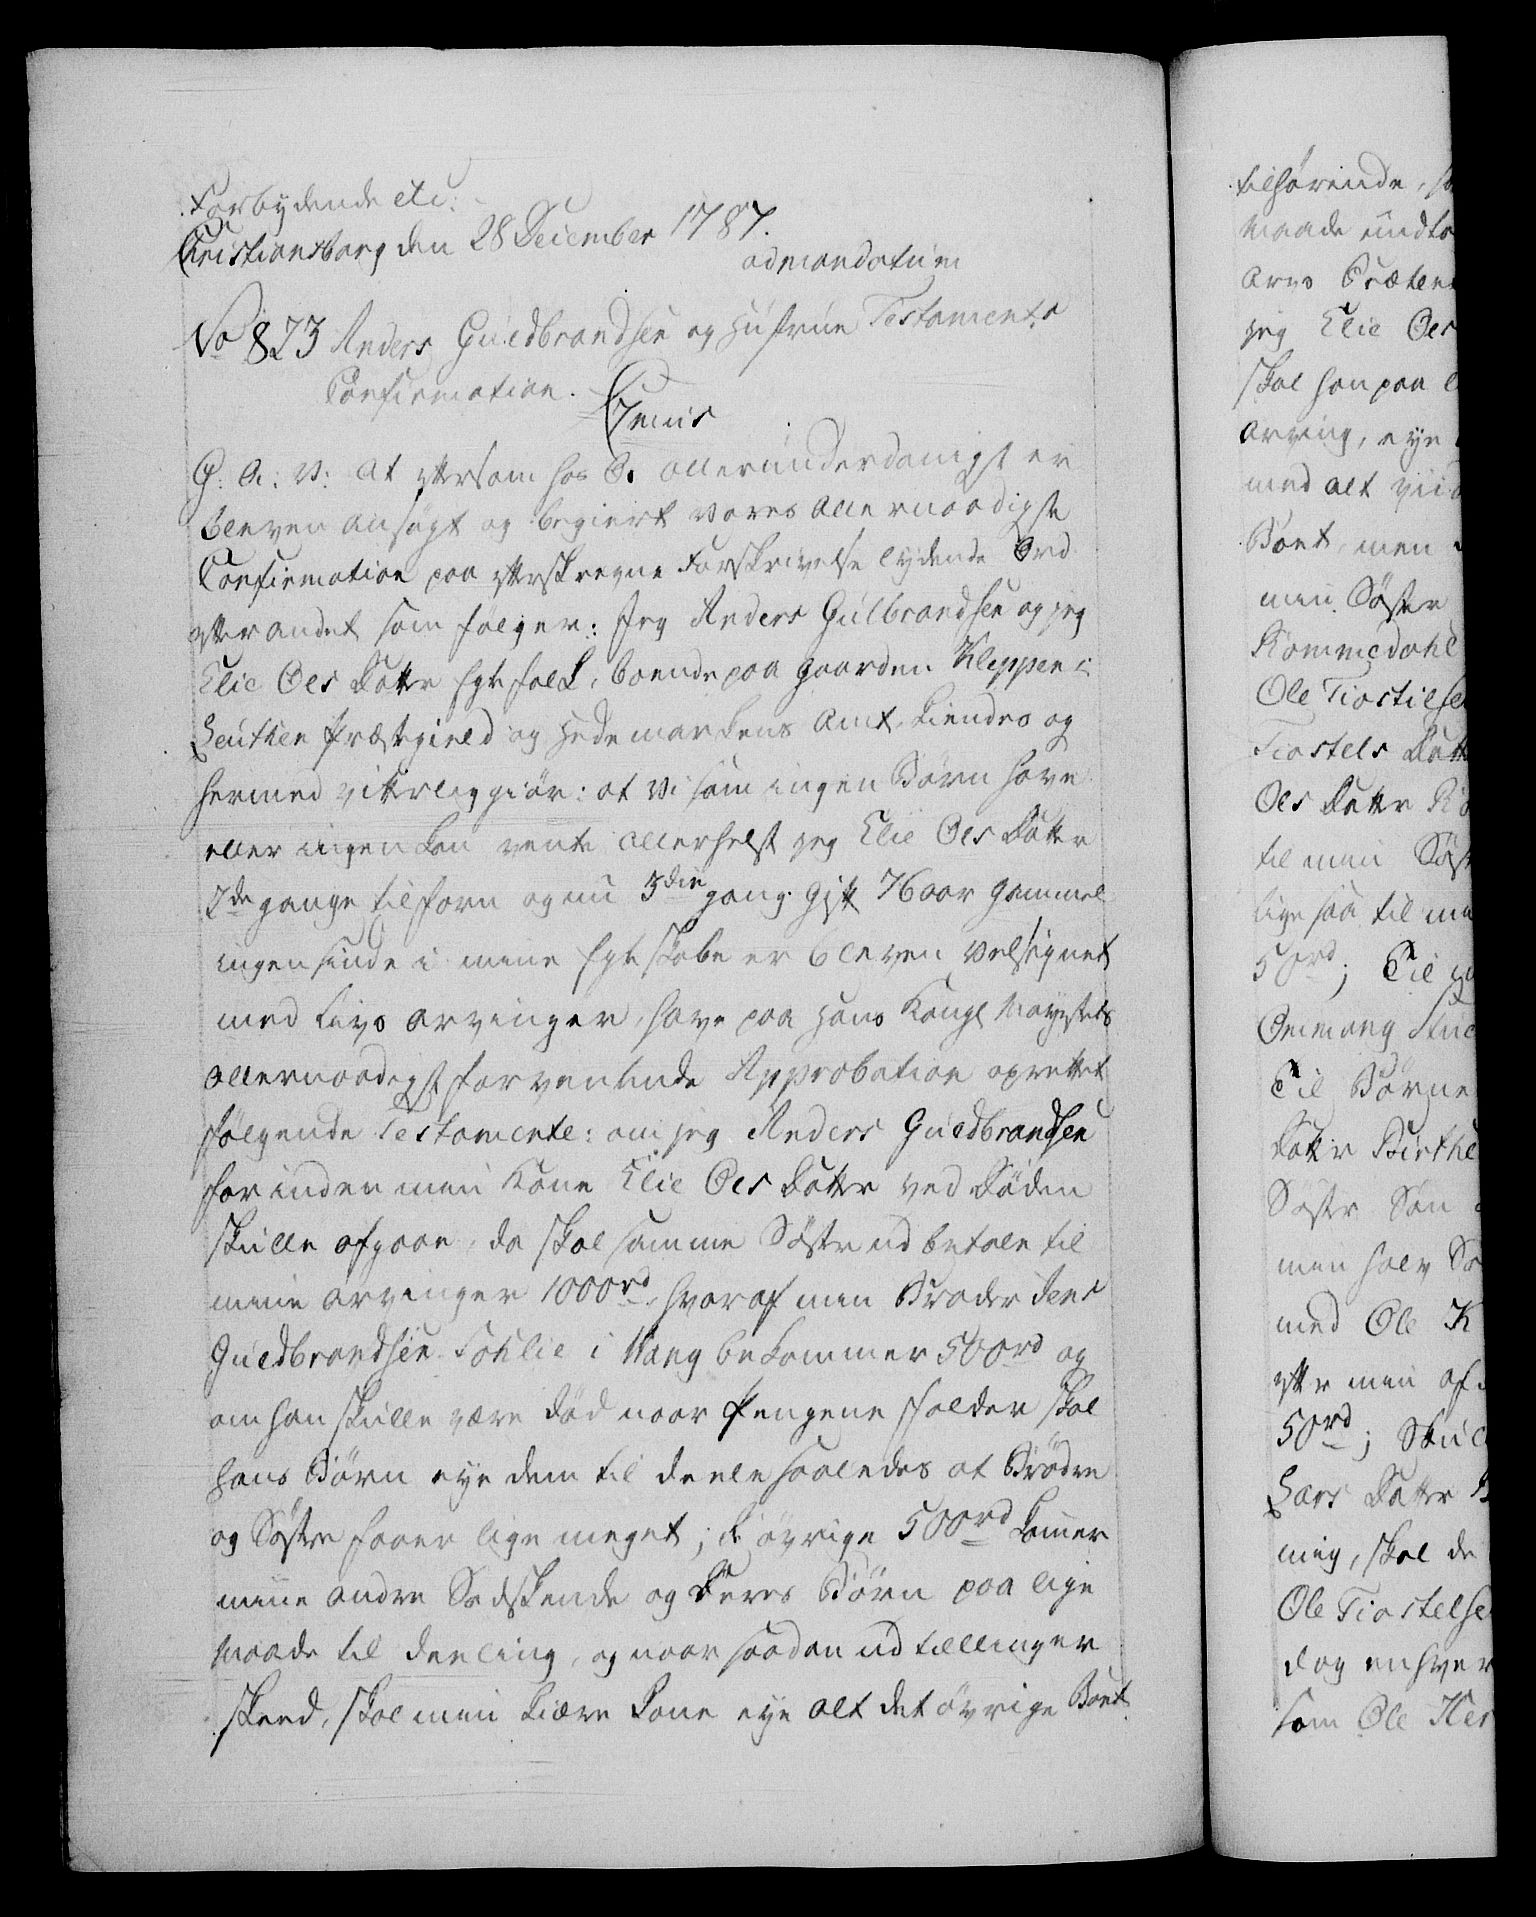 Forbydende etc:
Christiansborg den 28 December 1787.
ad mandatum
No 823 Anders Guldbrandsen og Hustrue Testaments
Confirmation.
C 7mus
G. A. V: At eftersom hos Os allerunderdanigst er
bleven ansøgt og begiert Vores allernaadigste
Confirmation paa efterskrevne Forskrivelse lydende Ord
efter andet som følger: Jeg Anders Gulbrandsen og jeg
Elie Oels Datter Egtefolk, boende paa Gaarden Kleppen i
Leuthen Præstegield og Hedemarkens Amt, kiendes og
hermed vitterliggiør: at vi som ingen Børn have
eller ingen kan vente allerhelst jeg Elie Oels Datter
2de gange tilforn og nu 3die gang gift 76 aar gammel
ingensinde i mine Egteskaber er bleven velsignet
med Livs arvinger, have paa Hans Kongl Mayestæts
allernaadigst forventende Approbation oprettet
følgende Testamente: om jeg Anders Guldbrandsen
forinden min Kone Elie Oels Datter ved Døden
skulle afgaae, da skal samme Søster udbetale til
mine arvinger 1000rd, hvoraf min Broder Jens
Guldbrandsen Sohlie i Vang bekommer 500rd og
om han skulle være død naar Pengene falder skal
hans Børn eye dem til deele saaledes at Brødre
og Søstre faaer lige meget; de øvrige 500rd kommer
mine andre Sødskende og Deres Børn paa lige
Maade til deeling, og naar saadan udtællinger
skeed, skal min kiære Kone eye alt det øvrige Boet
tilhørende, s
Maade undta
Arvs Præten
jeg Elie Oels
skal han paa l
arving, eye
med alt vii
Boet, men
min Søster
Kommedahl
Ole Tiostelse
Tiostels Datt
Oels Datter Ki
til min Søst
ligesaa til m
50rd; Til
Ommang
Til Børne
Datter Birthe
Søster Søn
men halv Sø
med Ole K
efter min af
50rd; Skul
Lars Datter
mig, skal de
Ole Tiostelse
dog enhver
som Ole